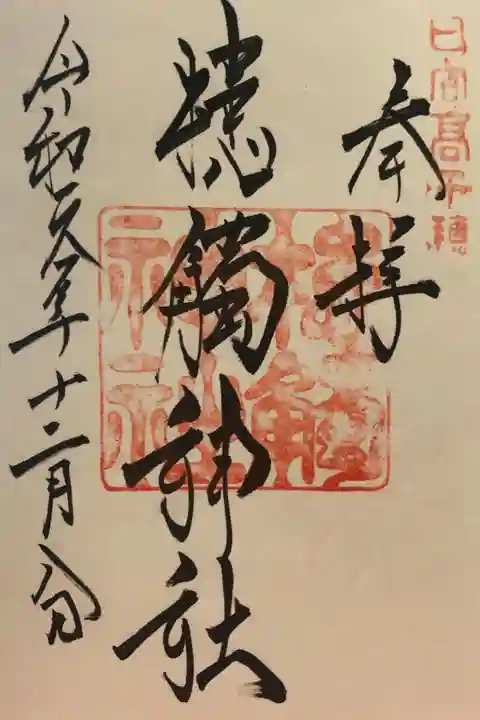 日向高千穗
奉拝
槵觸神社
令和元年十二月八日